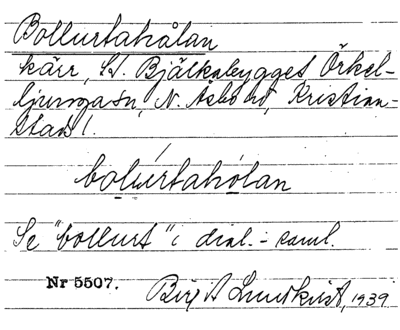 Bollurtahålan
kärr, St. Bjälkabygget Örkel-
ljungasn, N. Åsbohd, Kristian-
stads l.
bolurtahólan
Se "bollurt" i dial.-saml.
Nr 5507. Birgit Lundkvist, 1939